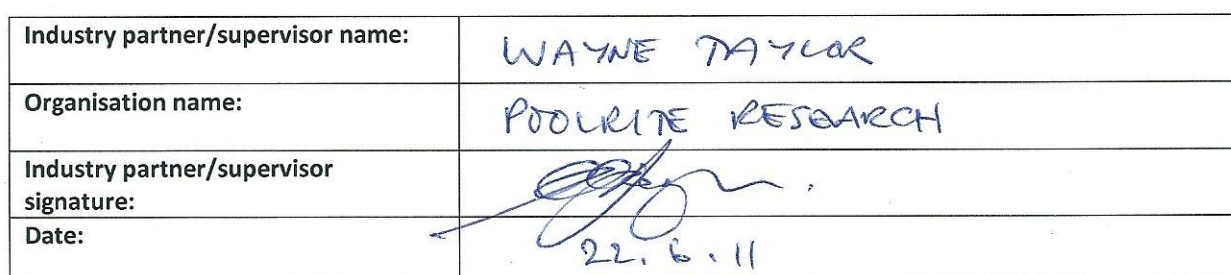 Industry partner/supervisor name: WAYNE TAYLOR
Organisation name: POOLRITE RESEARCH
Industry partner/supervisor
signature:
Date: 22.6.11